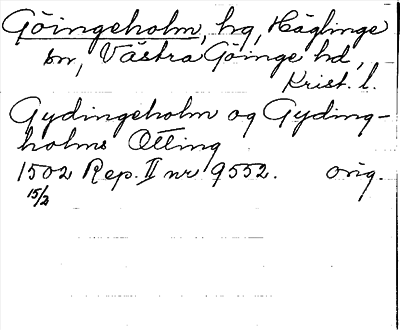 Göingeholm, hg, Häglinge
sn, Västra Göinge hd,
Krist. l.
Gydingeholm og Gyding-
holms Otting
1502 Rep. II nr 9552. orig.
15/2